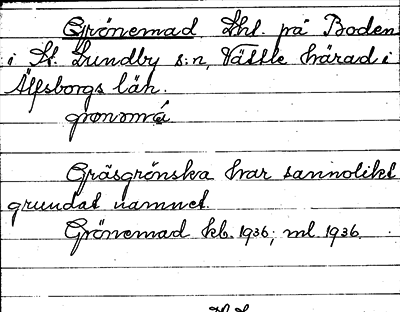 Grönemad, Lht. på Boden
i St. Lundby s:n, Vättle härad i
Älfsborgs län.
Gräsgrönska har sannolikt
grundat namnet.
Grönemad kb. 1936; ml. 1936.